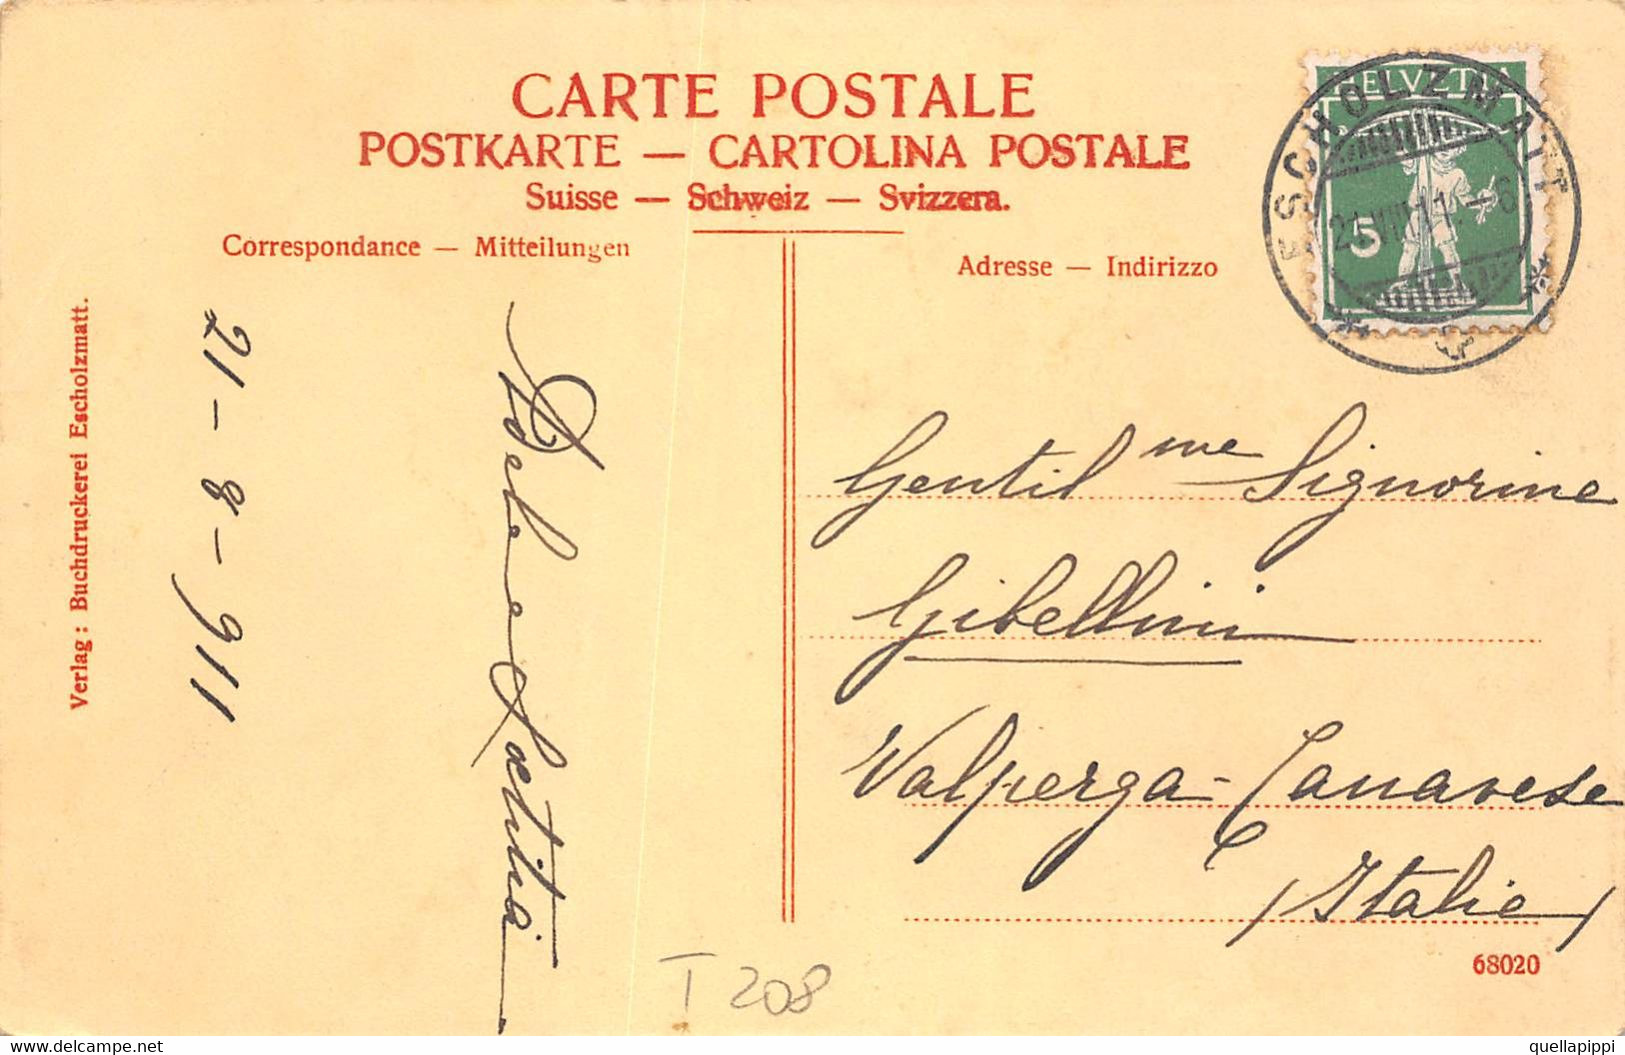 CARTE POSTALE
POSTKARTE — CARTOLINA POSTALE
Suisse — Schweiz — Svizzera.
Correspondance — Mitteilungen
Adresse — Indirizzo
HELVETIA
5
ESCHOLZMATT
21.VIII.11.–6
Verlag: Buchdruckerei Escholzmatt.
21–8–911
Gentil me Signorine
Gibellini
Valperga-Canavese
(Italie)
68020
T 208
www.delcampe.net
quellapippi